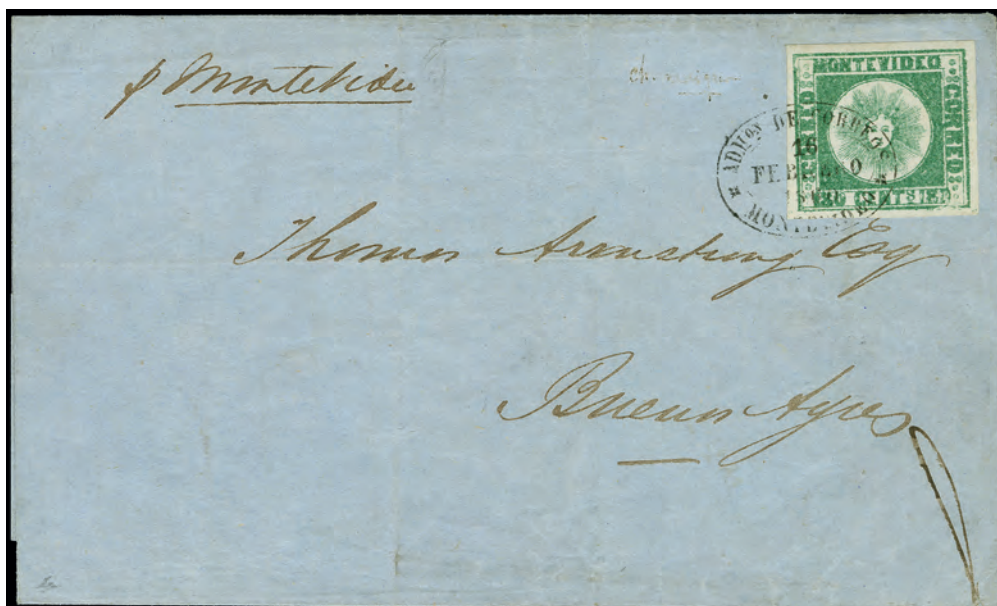 p Montevideo
MONTEVIDEO
CORREO
CORREO
ADMON DE CORREOS
16
FEBRERO
MONTEVIDEO
Thomas Armstrong Esq
Buenos Ayres